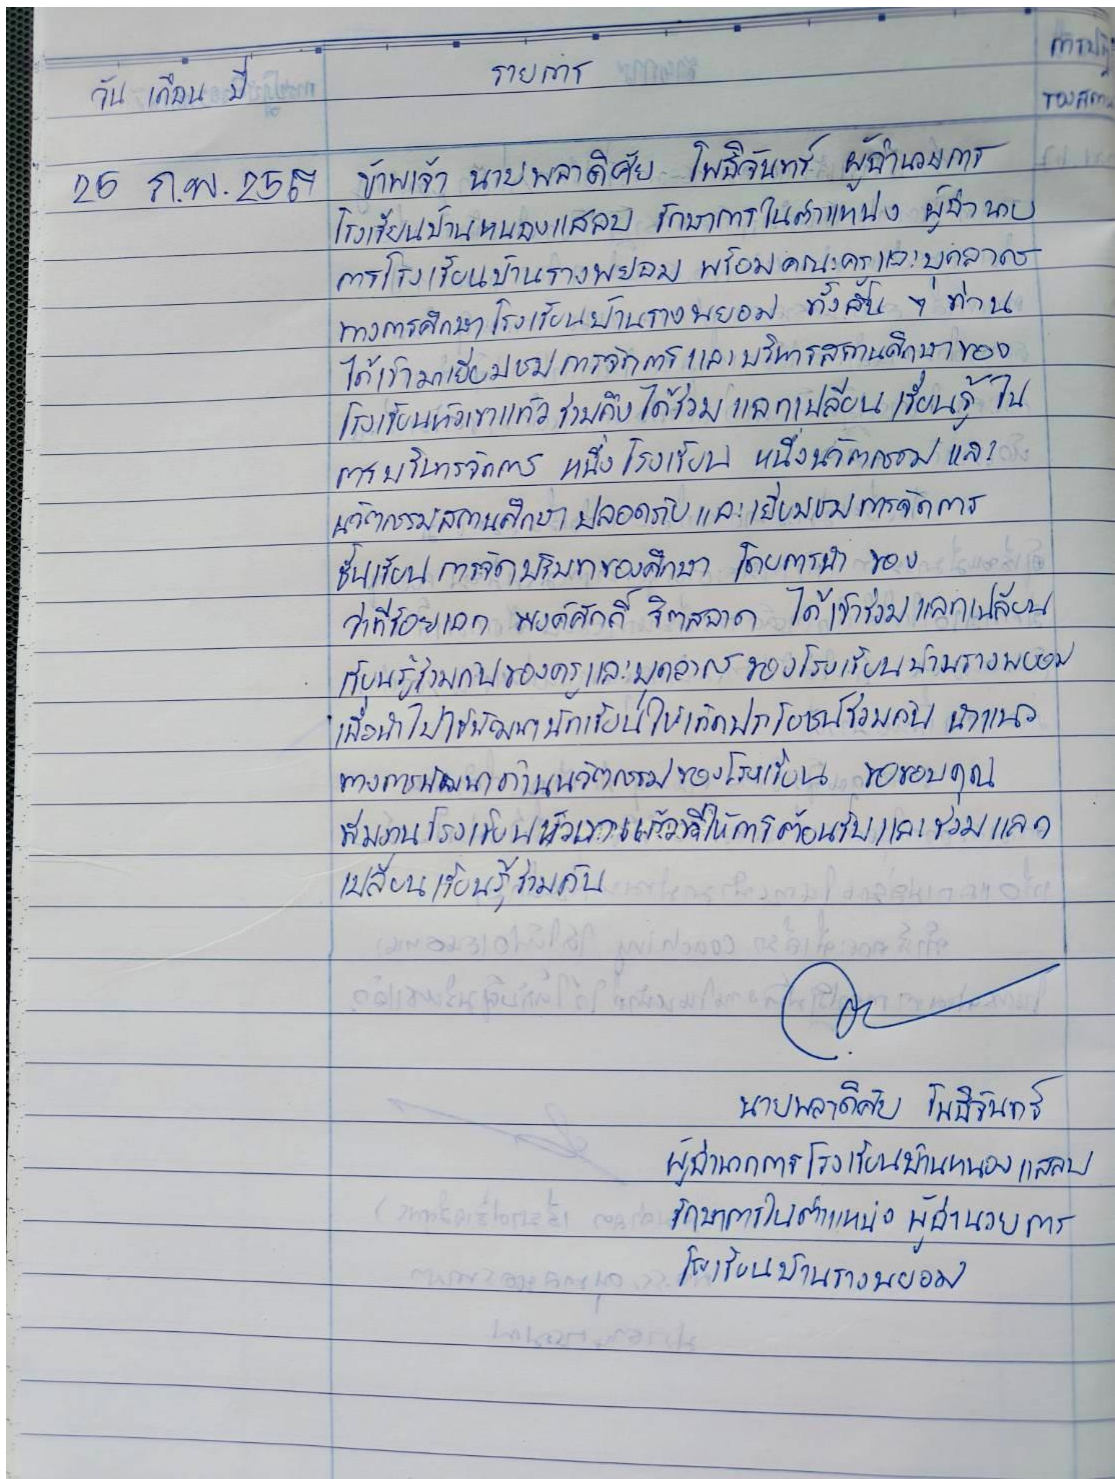 วัน เดือน ปี
รายการ
การปฏิ
ของสถาน
26 ก.พ. 2567 ข้าพเจ้า นายพลาดิศัย โพธิจันทร์ ผู้อำนวยการ
โรงเรียนบ้านหนองแสลบ รักษาการในตำแหน่ง ผู้อำนวย
การโรงเรียนบ้านรางพยอม พร้อมคณะครูและบุคลากร
ทางการศึกษาโรงเรียนบ้านรางพยอม ทั้งสิ้น ท่าน
ได้เข้ามาเยี่ยมชมการจัดการและบริหารสถานศึกษาของ
โรงเรียนหัวเขาแก้ว รวมถึงได้ร่วมแลกเปลี่ยนเรียนรู้ ใน
การบริหารจัดการ หนึ่งโรงเรียน หนึ่งนวัตกรรม และ
นวัตกรรมสถานศึกษาปลอดภัย และเยี่ยมชมการจัดการ
ชั้นเรียน การจัดบริบทของศึกษา โดยการนำ ของ
ว่าที่ร้อยเอก พงค์ศักดิ์ ได้เข้าร่วมแลกเปลี่ยน
เรียนรู้ร่วมกันของครูและบุคลากรของโรงเรียนบ้านรางพยอม
เพื่อนำไปใช้พัฒนานักเรียนให้เกิดประโยชน์ร่วมกัน นำแนว
ทางการพัฒนาด้านนวัตกรรมของโรงเรียน ขอขอบคุณ
ทีมงานโรงเรียนหัวเขาแก้วที่ให้การต้อนรับและร่วมแลก
เปลี่ยนเรียนรู้ร่วมกัน
นายพลาดิศัย โพธิจันทร์
ผู้อำนวยการโรงเรียนบ้านหนองแสลบ
รักษาการในตำแหน่ง ผู้อำนวยการ
โรงเรียนบ้านรางพยอม